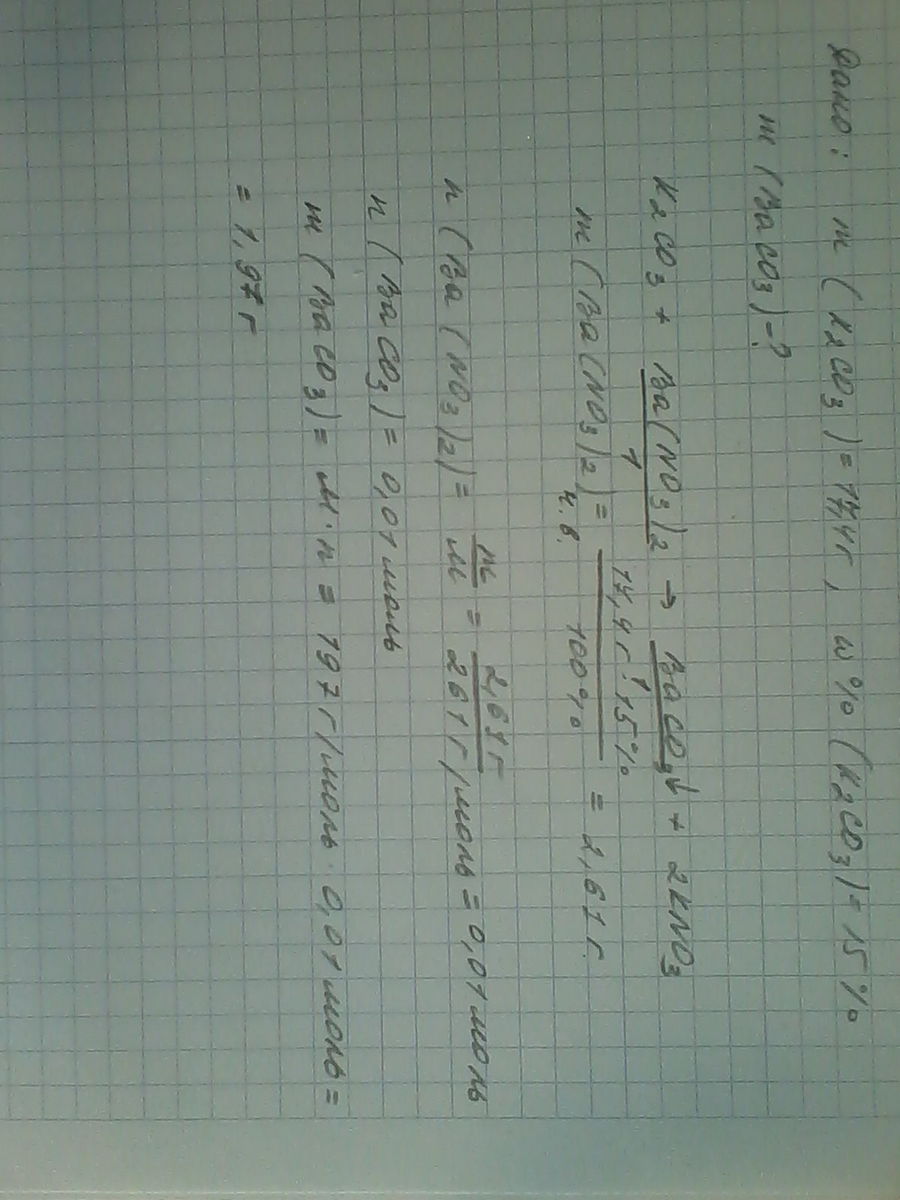 Дано: m (K2CO3) = 17,4г, ω% (K2CO3) = 15%
m (BaCO3) - ?
K2CO3 + Ba(NO3)2 → BaCO3↓ + 2KNO3
m (Ba(NO3)2) ч.в. = 17,4г · 15% / 100% = 2,61г.
n (Ba(NO3)2) = m / M = 2,61г / 261г/моль = 0,01моль
n (BaCO3) = 0,01моль
m (BaCO3) = M · n = 197г/моль · 0,01моль =
= 1,97г